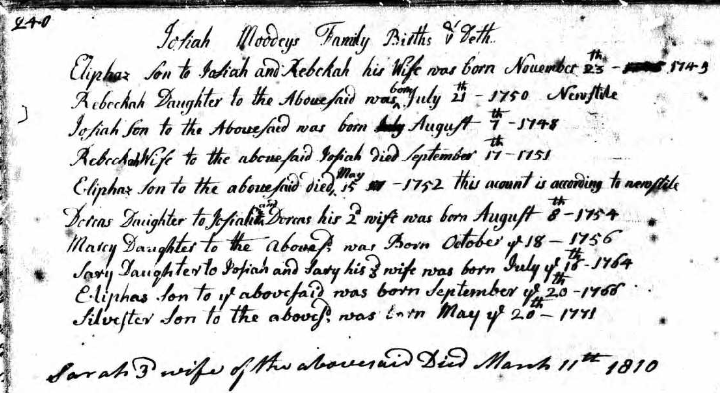 240
Josiah Moodeys Family Births & Deth
Eliphaz Son to Josiah and Rebekah his Wife was born November 23th - 1743
Rebeckah Daughter to the Abovesaid was born July 21th - 1750 Newstile
Josiah Son to the Abovesaid was born July August 7th - 1748
Rebeckah Wife to the abovesaid Josiah died September 17th - 1751
Eliphaz Son to the abovesaid died May 15 - 1752 this acount is according to newstile
Dorcas Daughter to Josiah and Dorcas his 2d wife was born August 8th - 1754
Marcy Daughter to the Aboves:d was Born October ye 18 - 1756
Sary Daughter to Josiah and Sary his 3d wife was born July ye 16th - 1764
Eliphas Son to ye abovesaid was born September ye 20th - 1766
Silvester Son to the aboves:d was born May ye 20th - 1771
Sarah 3d wife of the abovesaid Died March 11th 1810